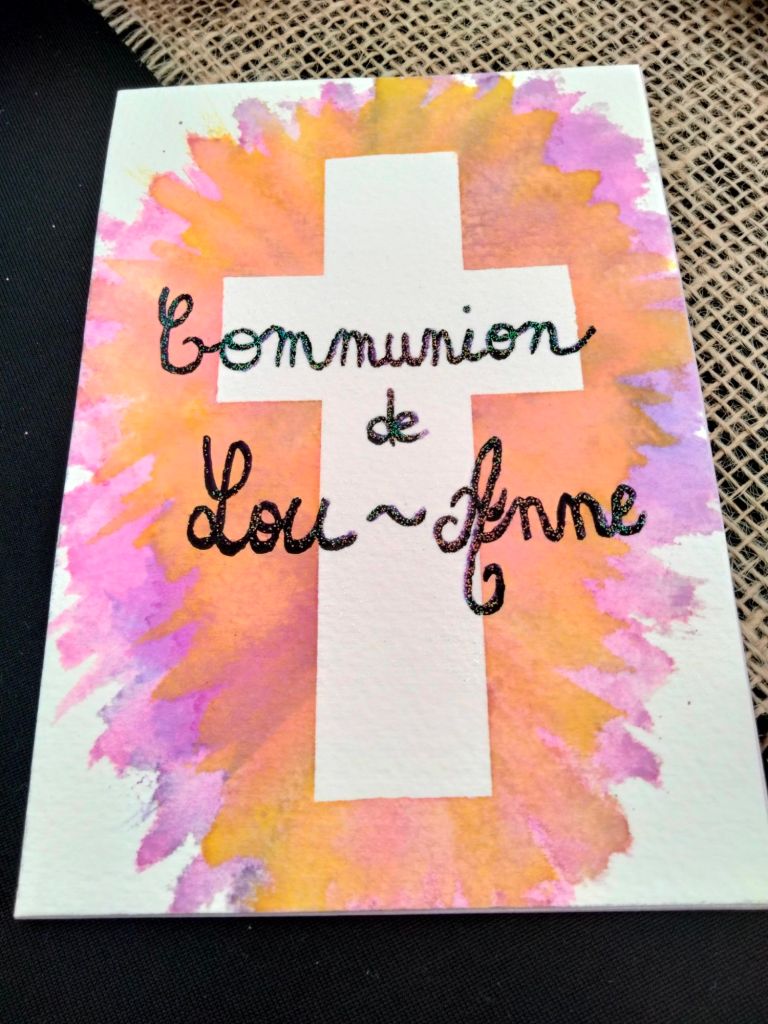 Communion
de
Lou ~ Anne